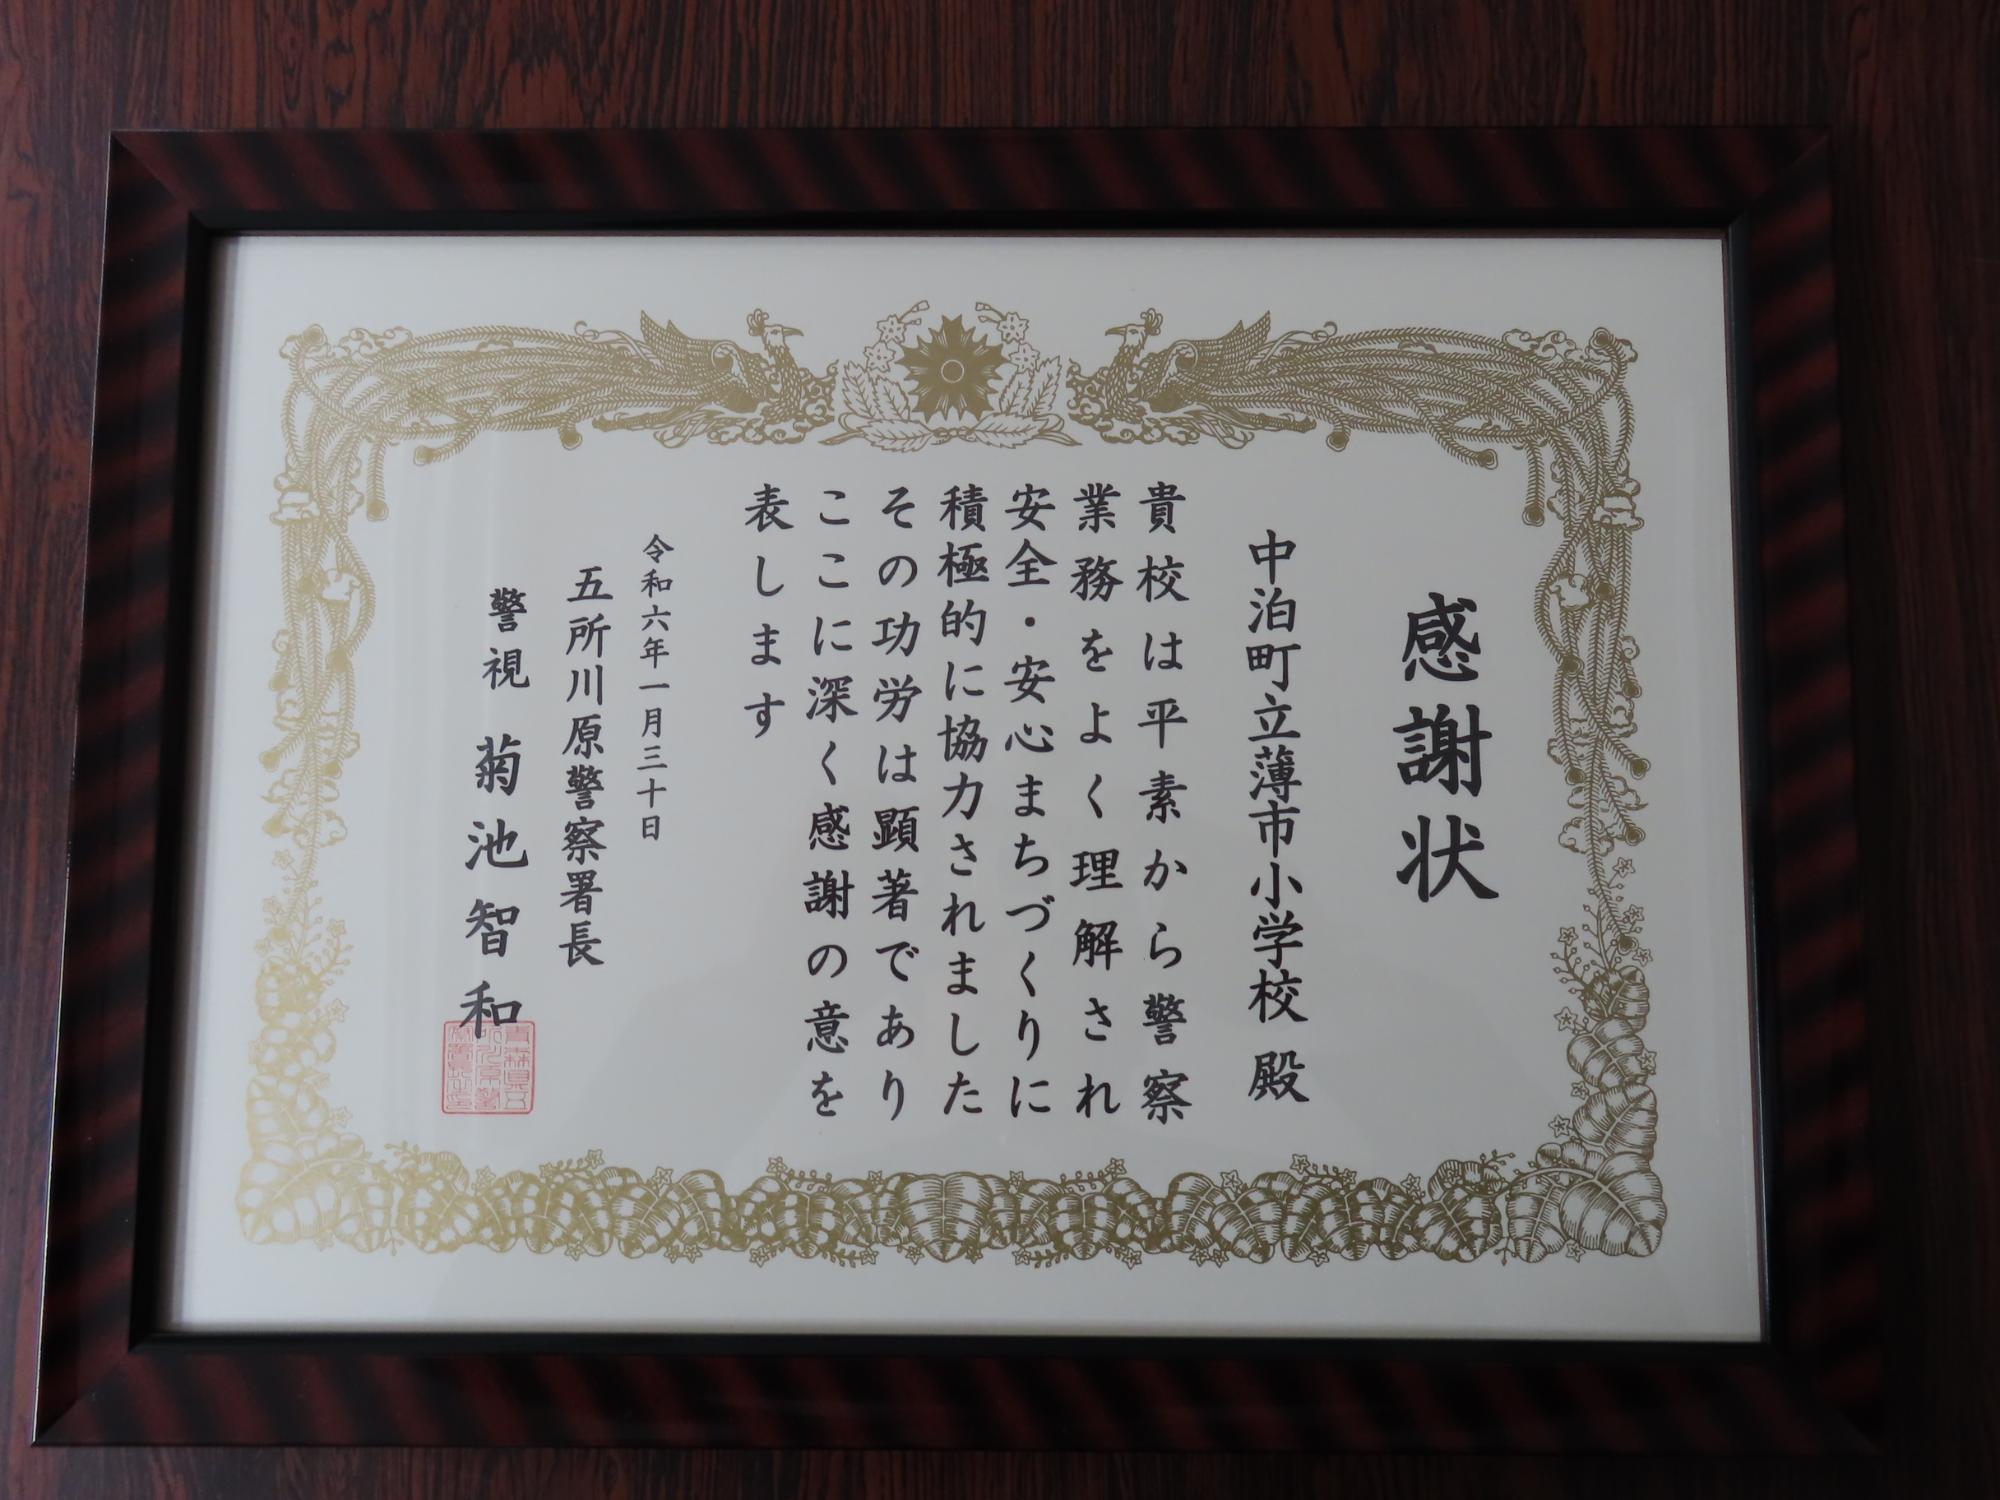 感謝状
中泊町立薄市小学校 殿
貴校は平素から警察
業務をよく理解され
安全・安心まちづくりに
積極的に協力されました
その功労は顕著であり
ここに深く感謝の意を
表します
令和六年一月三十日
五所川原警察署長
警視 菊池智和